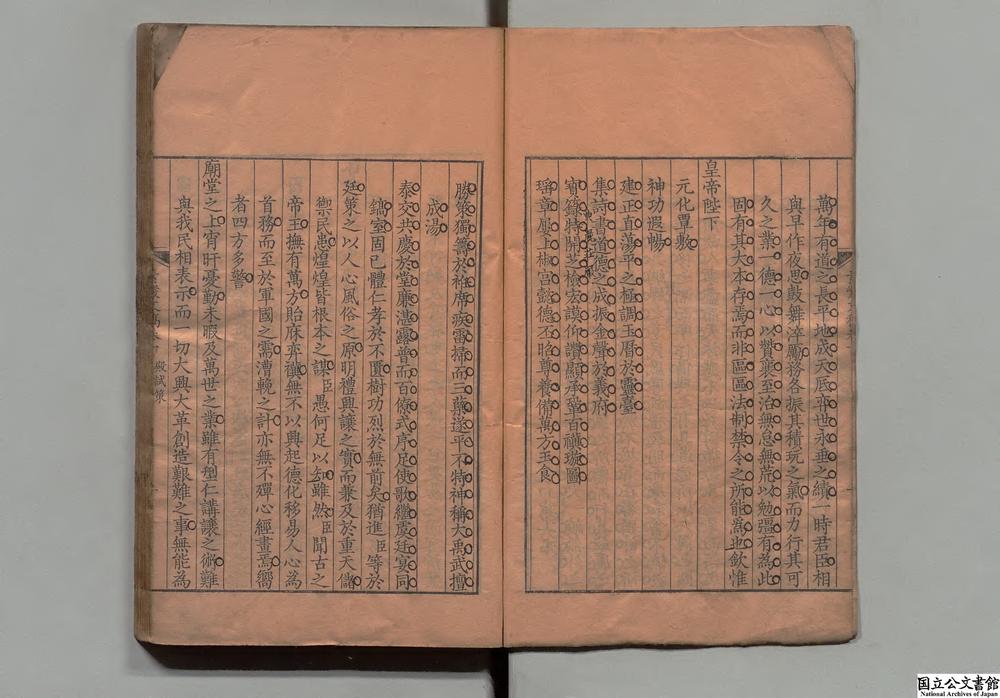 萬年有道之長平地成天底弈世永垂之績一時君臣相
與早作夜思鼓舞淬厲務各振其積玩之氣而力行其可
久之業一德一心以贊襄至治無怠無荒以勉彊有為此
固有其大本存焉而非區區法制禁令之所能為也欽惟
皇帝陛下
元化覃敷
神功遐暢
建正直蕩平之極調玉曆於靈臺
集詩書道德之成振金聲於義府
寶籙特開芝檢宏謨仰讚顯承鞏百禩璇圖
瑤章屢上椒宮懿德丕昭尊養備萬方玉食
勝策獨籌於袵席疾雷掃而三蘗遂平不特神稱大禹武擅
成湯
泰交共慶於堂廉湛露普而百僚式序足使歌繼虞廷宴同
鎬室固已體仁孝於不匱樹功烈於無前矣猶進臣等於
廷策之以人心風俗之原明禮興讓之實而兼及於重天儲
禦民患煌煌皆根本之謀臣愚何足以知雖然臣聞古之
帝王撫有萬方貽庥弈禩無不以興起德化移易人心為
首務而至於軍國之需漕輓之計亦無不殫心經畫焉嚮
者四方多警
廟堂之上宵旰憂勤未暇及萬世之業雖有型仁講讓之微難
與我民相表示而一切大興大革創造艱難之事無能為
殿試策
国立公文書館
National Archives of Japan